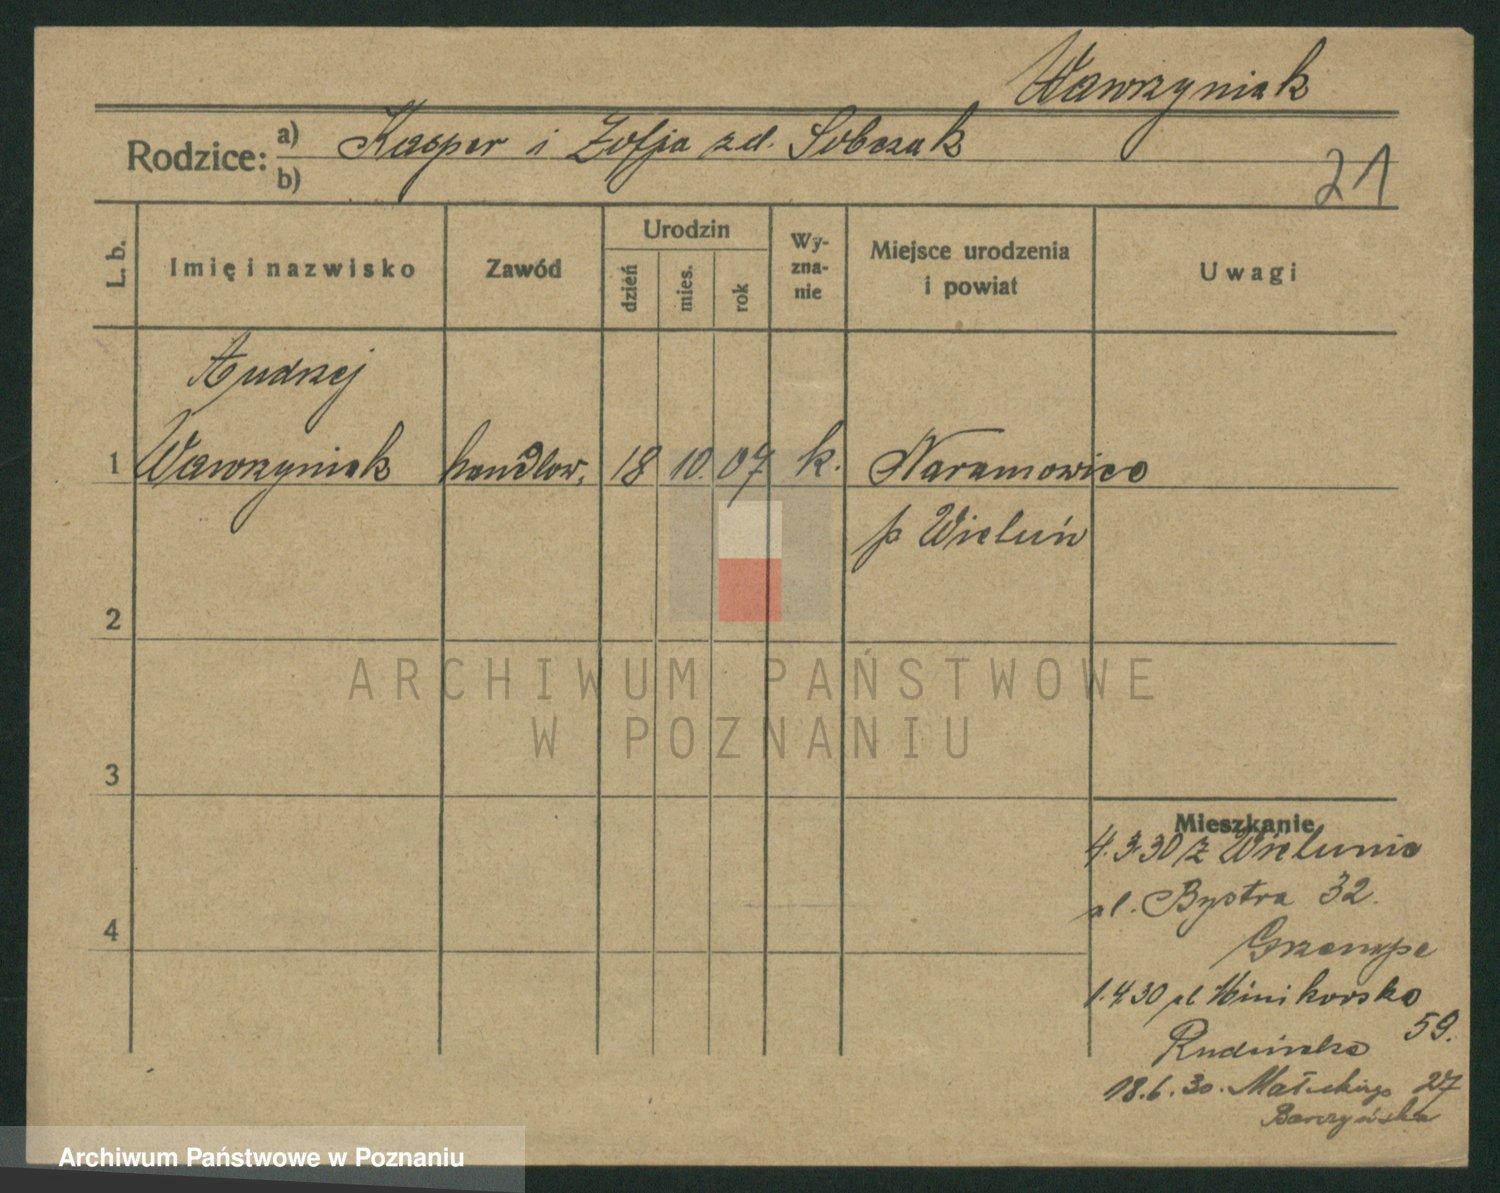 Wawrzyniak
Rodzice: a) Kasper i Zofja zd. Sobczak
b)
21
L. b.
Imię i nazwisko
Zawód
Urodzin
dzień
mies.
rok
Wy-
zna-
nie
Miejsce urodzenia
i powiat
Uwagi
Andrzej
1 Wawrzyniak handlow. 18 10. 07 k. Naramowice
p Wieluń
2
ARCHIWUM PAŃSTWOWE
W POZNANIU
3
Mieszkanie
4.3.30 z Wielunia
ul. Bystra 32.
4
1.4.30 ul
59.
Rudzińska
18.6.30. Małeckiego 27
Barczyńska
Archiwum Państwowe w Poznaniu